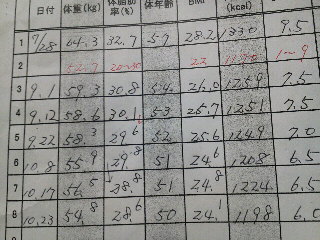 日付 体重(kg) 体脂肪率(%) 体年齢 BMI (kcal)
1 7/28 64.3 32.7 57 28.2 1330 9.5
2 52.7 20~30 22 1170 1~9
3 9.1 59.3 30.8 54 1259 7.5
4 9.12 58.6 30.1 53 25.7 1251 7.5
5 9.22 58.3 29.6 52 25.6 1249 7.0
6 10.8 55.9 29.8 51 24.6 1208 6.5
7 10.17 56.5 28.8 51 24.8 1224 6.5
8 10.23 54.8 28.6 50 24.1 1198 6.0